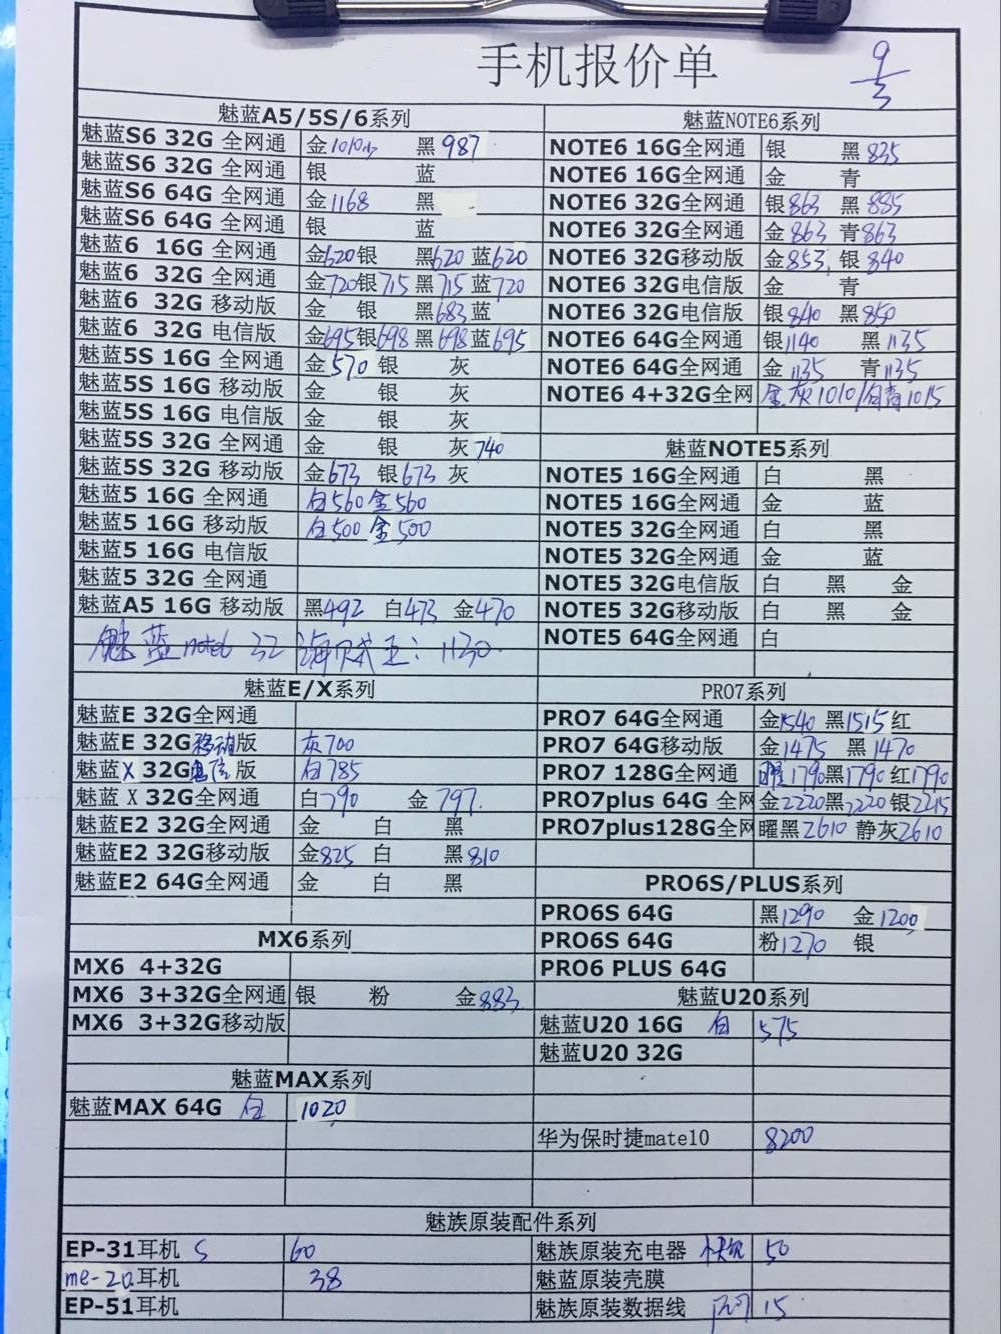 手机报价单
9/3
魅蓝A5/5S/6系列
魅蓝S6 32G 全网通 金1010 黑987
魅蓝S6 32G 全网通 银 蓝
魅蓝S6 64G 全网通 金1168 黑
魅蓝S6 64G 全网通 银 蓝
魅蓝6 16G 全网通 金620银 黑620 蓝620
魅蓝6 32G 全网通 金720银715 黑715 蓝720
魅蓝6 32G 移动版 金 银 黑683蓝
魅蓝6 32G 电信版 金695银698 黑698蓝695
魅蓝5S 16G 全网通 金570 银 灰
魅蓝5S 16G 移动版 金 银 灰
魅蓝5S 16G 电信版 金 银 灰
魅蓝5S 32G 全网通 金 银 灰740
魅蓝5S 32G 移动版 金673 银673 灰
魅蓝5 16G 全网通 白560 金560
魅蓝5 16G 移动版 白500 金500
魅蓝5 16G 电信版
魅蓝5 32G 全网通
魅蓝A5 16G 移动版 黑492 白473 金470
魅蓝note6 32 海贼王：1130
魅蓝E/X系列
魅蓝E 32G全网通
魅蓝E 32G移动版 灰700
魅蓝X 32G电信版 白785
魅蓝X 32G全网通 白790 金797
魅蓝E2 32G全网通 金 白 黑
魅蓝E2 32G移动版 金825 白 黑810
魅蓝E2 64G全网通 金 白 黑
MX6系列
MX6 4+32G
MX6 3+32G全网通 银 粉 金883
MX6 3+32G移动版
魅蓝MAX系列
魅蓝MAX 64G 白 1020
魅蓝NOTE6系列
NOTE6 16G全网通 银 黑835
NOTE6 16G全网通 金 青
NOTE6 32G全网通 银863 黑885
NOTE6 32G全网通 金863 青863
NOTE6 32G移动版 金853, 银840
NOTE6 32G电信版 金 青
NOTE6 32G电信版 银840 黑850
NOTE6 64G全网通 银1140 黑1135
NOTE6 64G全网通 金1135 青1135
NOTE6 4+32G全网 金灰1010/白青1015
魅蓝NOTE5系列
NOTE5 16G全网通 白 黑
NOTE5 16G全网通 金 蓝
NOTE5 32G全网通 白 黑
NOTE5 32G全网通 金 蓝
NOTE5 32G电信版 白 黑 金
NOTE5 32G移动版 白 黑 金
NOTE5 64G全网通 白
PRO7系列
PRO7 64G全网通 金1540 黑1515红
PRO7 64G移动版 金1475 黑1470
PRO7 128G全网通 曜1790黑1790红1790
PRO7plus 64G 全网 金2220黑2220 银2215
PRO7plus128G全网 曜黑2610 静灰2610
PRO6S/PLUS系列
PRO6S 64G 黑1290 金1200
PRO6S 64G 粉1270 银
PRO6 PLUS 64G
魅蓝U20系列
魅蓝U20 16G 白 575
魅蓝U20 32G
华为保时捷mate10 8200
魅族原装配件系列
EP-31耳机 S 60
me-20耳机 38
EP-51耳机
魅族原装充电器 50
魅蓝原装壳膜
魅族原装数据线 15